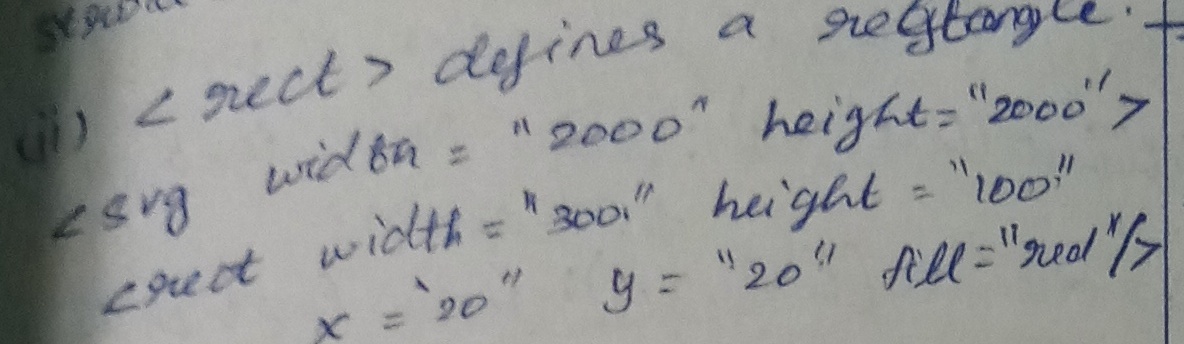 ii) <rect> defines a rectangle.
<svg width = "2000" height="2000">
<rect width="300" height = "100"
x = "20" y = "20" fill="red"/>